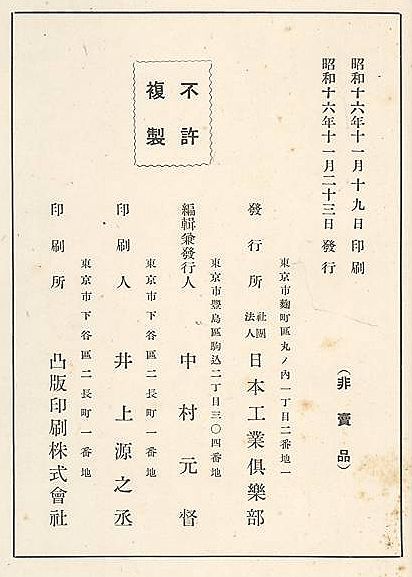 昭和十六年十一月十九日印刷
昭和十六年十一月二十三日發行
(非賣品)
不許
複製
東京市麴町區丸ノ內一丁目二番地一
發行所 社團法人 日本工業俱樂部
東京市豐島區駒込二丁目三〇四番地
編輯兼發行人 中村元督
東京市下谷區二長町一番地
印刷人 井上源之丞
東京市下谷區二長町一番地
印刷所 凸版印刷株式會社